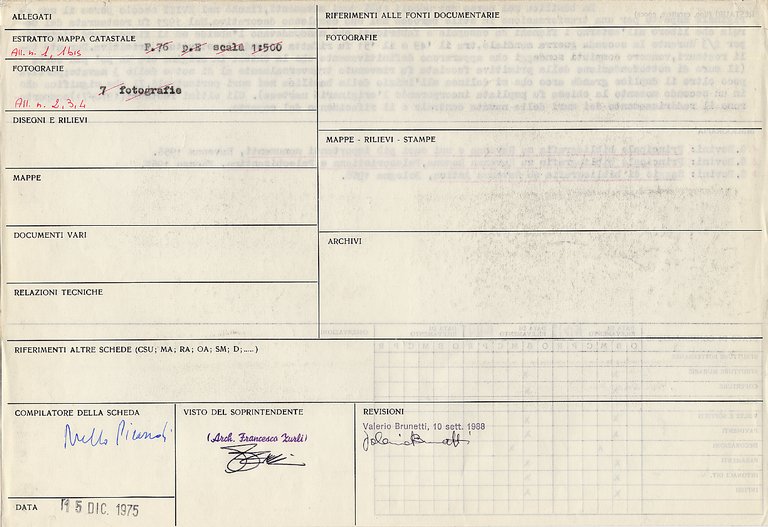 ALLEGATI
ESTRATTO MAPPA CATASTALE
F.76 p.E scala 1:500
All. n. 1, 1 bis
FOTOGRAFIE
7 fotografie
All. n. 2, 3, 4
DISEGNI E RILIEVI
MAPPE
DOCUMENTI VARI
RELAZIONI TECNICHE
RIFERIMENTI ALLE FONTI DOCUMENTARIE
FOTOGRAFIE
MAPPE - RILIEVI - STAMPE
ARCHIVI
RIFERIMENTI ALTRE SCHEDE (CSU; MA; RA; OA; SM; D;.....)
COMPILATORE DELLA SCHEDA
DATA
15 DIC. 1975
VISTO DEL SOPRINTENDENTE
(Arch. Francesco Zurli)
REVISIONI
Valerio Brunetti, 10 sett. 1988